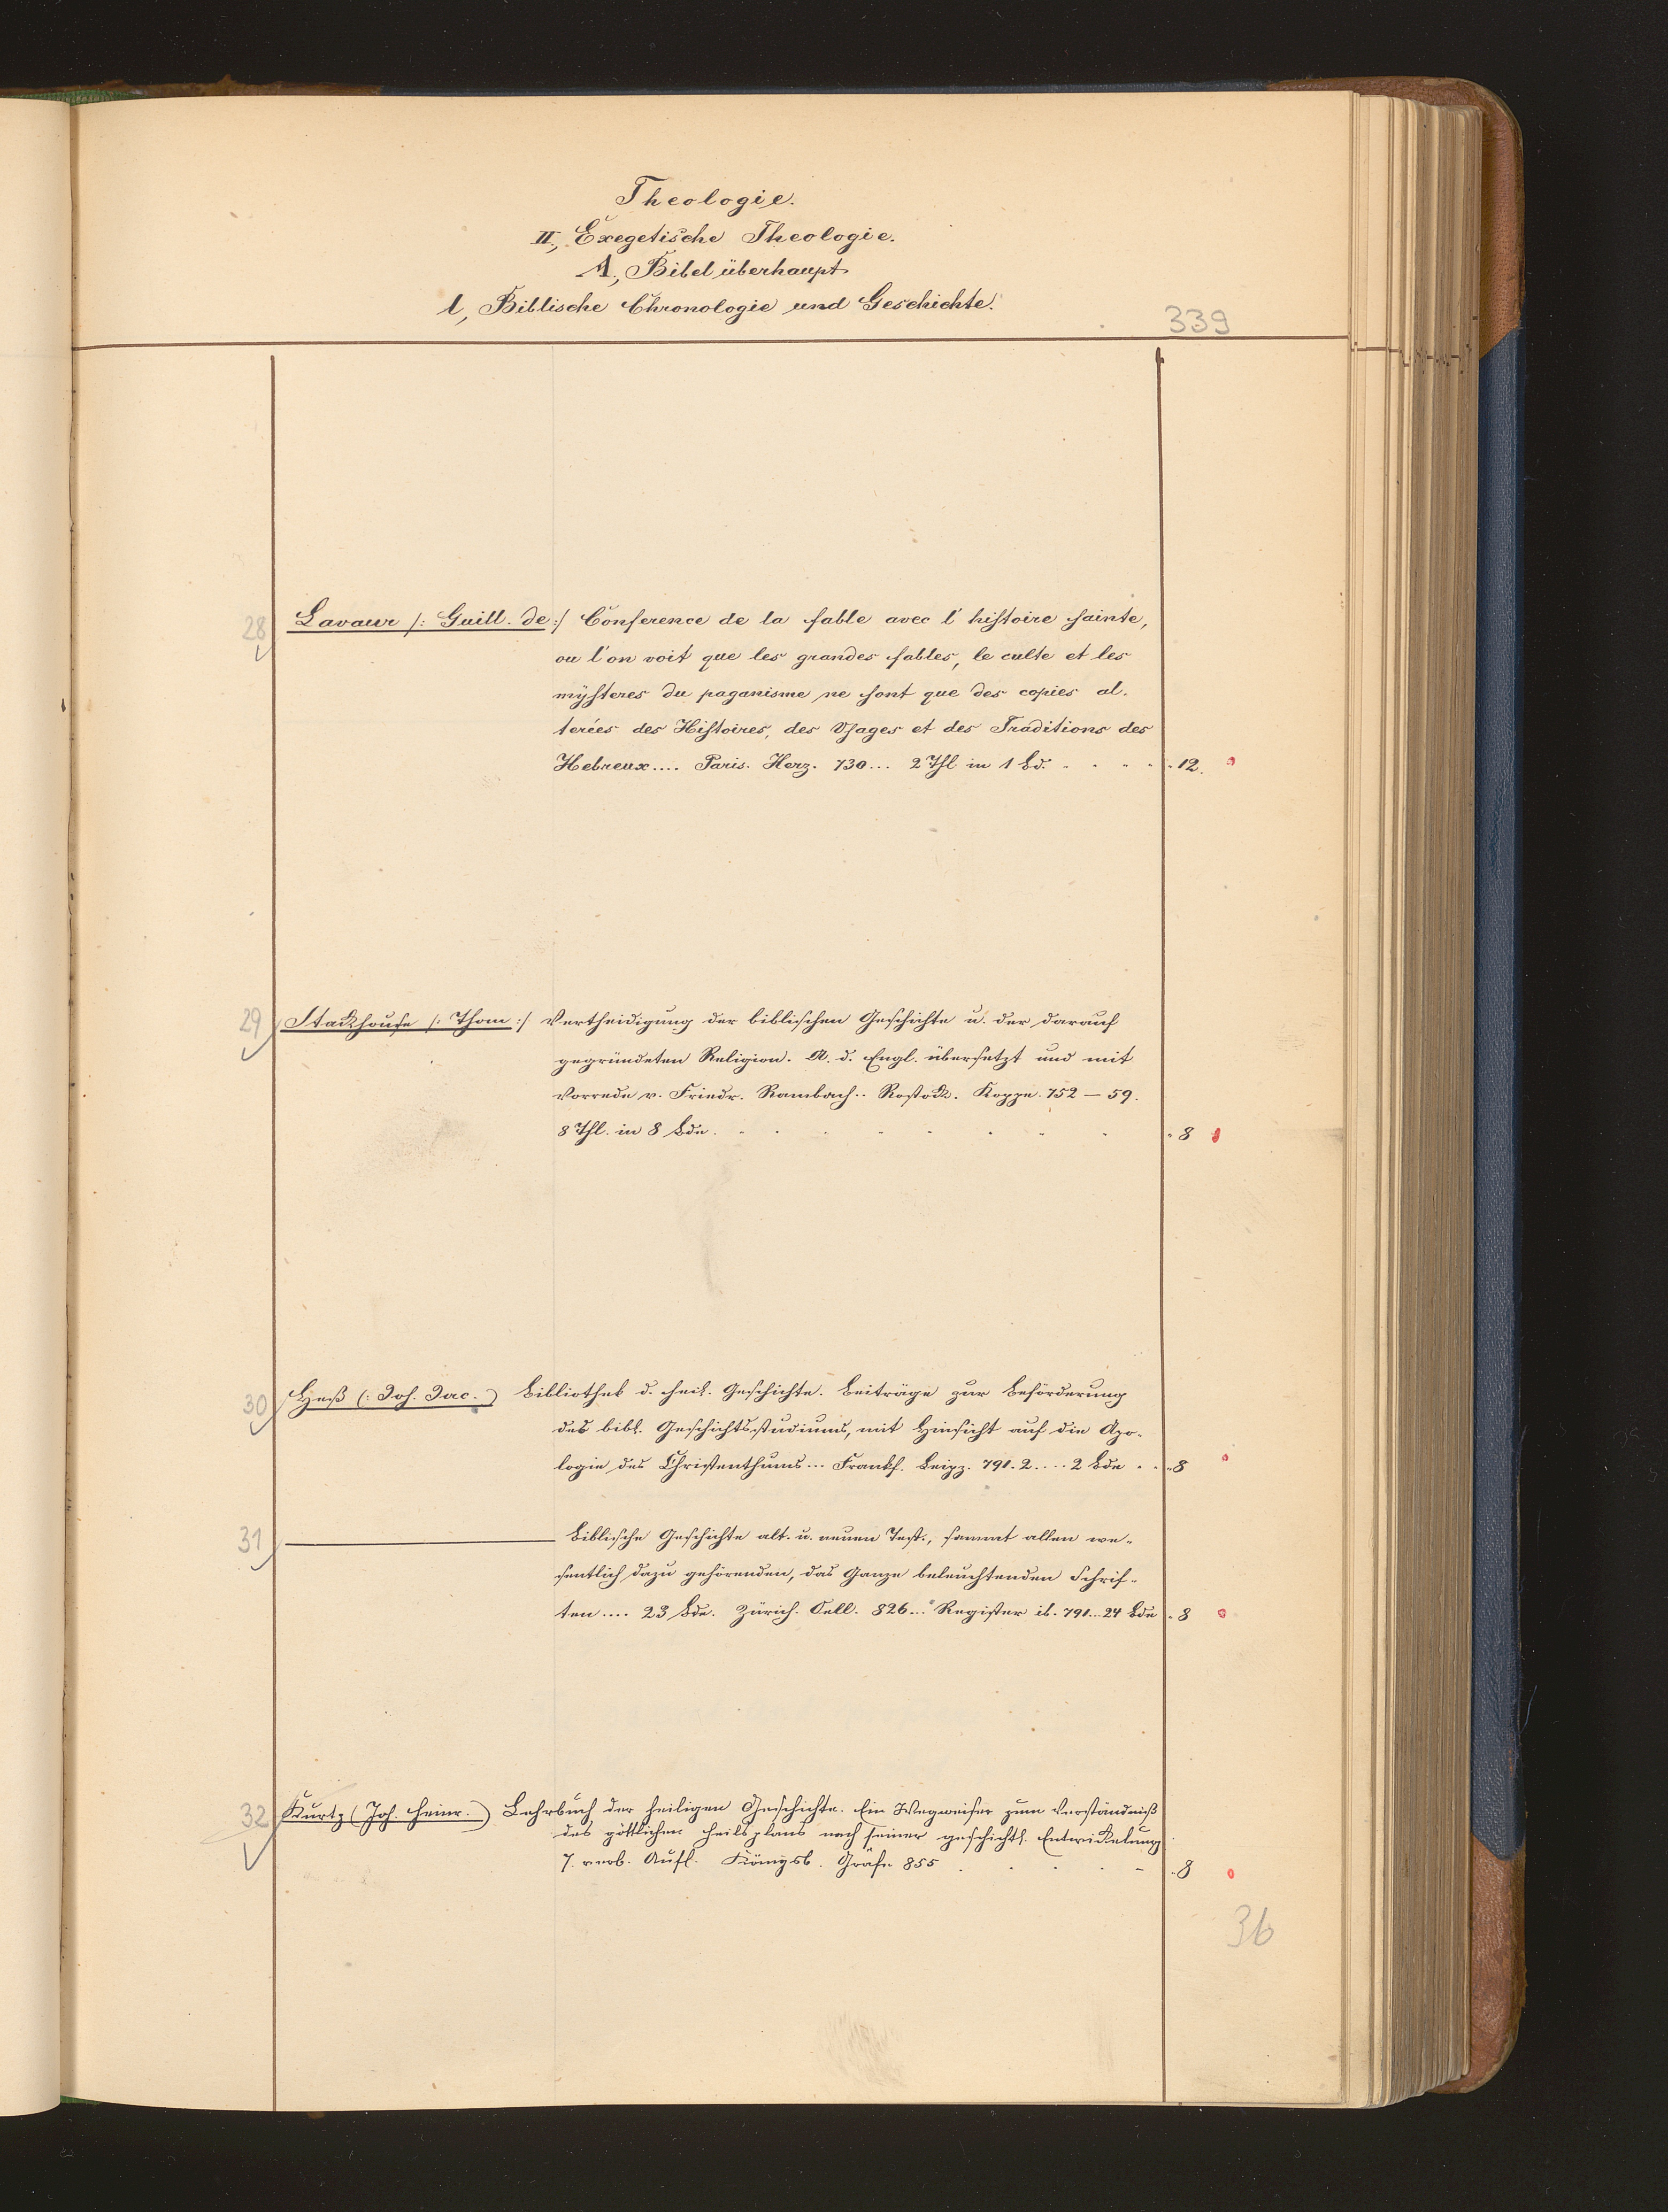 Theologie.
II, Exegetische Theologie.
A, Bibel überhaupt
l, Biblische Chronologie und Geschichte.
339
28 Lavaur /: Guill. de :/ Conference de la fable avec l' histoire sainte,
ou l'on voit que les grandes fables, le culte et les
mÿsteres du paganisme ne sont que des copies al-
terées des Histoires, des Usages et des Traditions des
Hebreux.... Paris. Herz. 730... 2 Thl. in 1 Bd. 12.
29 Stackhouse /: Thom :/ Vertheidigung der biblischen Geschichte u. der darauf
gegründeten Religion. A. d. Engl. übersetzt und mit
Vorrede v. Friedr. Rambach.. Rostock. Koppe. 752 – 59.
8 Thl. in 8 Bde. 8
30 Heß (: Joh. Jac. :) Bibliothek d. heil. Geschichte. Beiträge zur Beförderung
des bibl. Geschichtsstudiums, mit Hinsicht auf die Apo-
logie des Christenthums... Frankf. Leipz. 791. 2.... 2 Bde 8
31 ——— Biblische Geschichte alt. u. neuen Test., sammt allen we-
sentlich dazu gehörenden, das Ganze beleuchtenden Schrif-
ten.... 23 Bde. Zürich. Oell. 826... Register ib. 791... 24 Bde 8
32 Kurtz (Joh. Heinr.) Lehrbuch der heiligen Geschichte. Ein Wegweiser zum Verständniß
des göttlichen Heilsplans nach seiner geschichtl. Entwickelung
7. verb. Aufl. Königsb. Gräfe 855 8
36